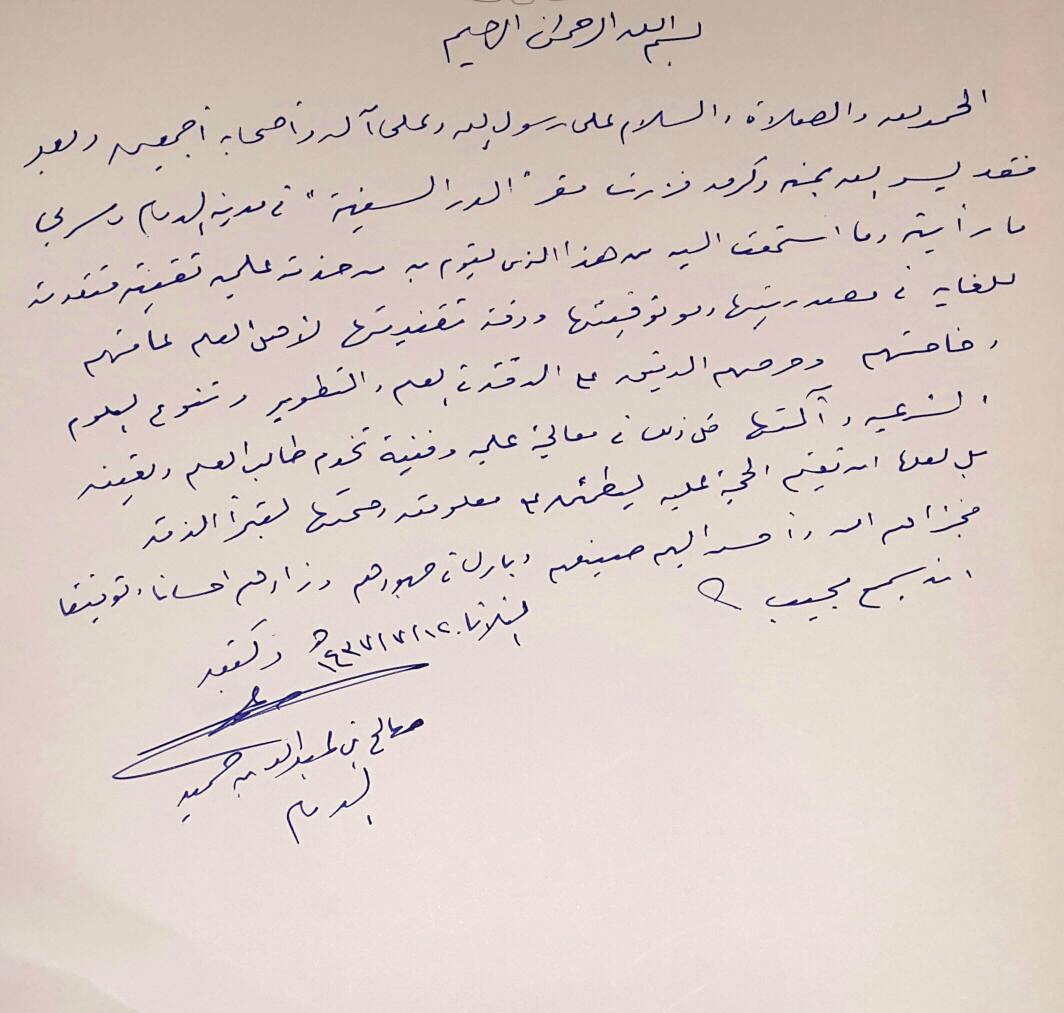 بسم الله الرحمن الرحيم
الحمد لله والصلاة والسلام على رسول الله وعلى آله وأصحابه أجمعين وبعد
فقد يسر الله بمنه وكرمه فزرت مقر "الدرر السنية" في مدينة الدمام وسرني
ما رأيته وما استمعت إليه من هذا الذي يقوم به من خدمة علمية تقنية متقدمة
للغاية في مصدريتها وموثوقيتها ودقة تقنيتها لأهل العلم عامتهم
وخاصتهم وحرصهم الدقيق على الدقة في العلم والتطوير وتنوع العلوم
الشرعية وآلتها كل ذلك في معالجة علمية وفنية تخدم طالب العلم وتعينه
بل لعلها أن تقيم الحجة عليه ليطمئن على معلومته وصحتها لتبرأ الذمة
فجزاهم الله وأحسن إليهم صنيعهم وبارك في جهودهم وزادهم إحسانا وتوفيقا
إنه سميع مجيب
الثلاثاء ١٤٣٧/٧/١٢هـ وكتبه
صالح بن عبدالله بن حميد
الدمام